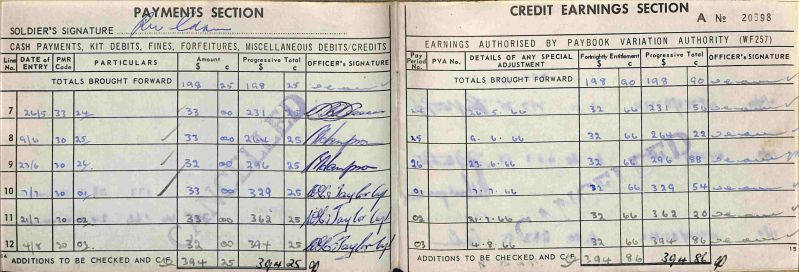 PAYMENTS SECTION
SOLDIER'S SIGNATURE
CASH PAYMENTS, KIT DEBITS, FINES, FORFEITURES, MISCELLANEOUS DEBITS/CREDITS
Line No. DATE of ENTRY PMR Code PARTICULARS Amount $ c Progressive Total $ c OFFICER'S SIGNATURE
TOTALS BROUGHT FORWARD 198 25 198 25
7 26/5 33 24 33 00 231 25
8 9/6 30 25 33 00 264 25
9 23/6 30 26 32 00 296 25
10 7/7 30 01 33 00 329 25 Taylor Capt
11 21/7 30 02 33 00 362 25 Taylor Capt
12 4/8 30 03 32 00 394 25 Taylor Capt
14 ADDITIONS TO BE CHECKED AND C/F 394 25 394 25
CANCELLED
CREDIT EARNINGS SECTION
A No 20398
EARNINGS AUTHORISED BY PAYBOOK VARIATION AUTHORITY (WF257)
Pay Period No. PVA No. DETAILS OF ANY SPECIAL ADJUSTMENT Fortnightly Entitlement $ c Progressive Total $ c OFFICER'S SIGNATURE
TOTALS BROUGHT FORWARD 198 90 198 90
24 26.5.66 32 66 231 56
25 9.6.66 32 66 264 22
26 23.6.66 32 66 296 88
01 7.7.66 32 66 329 54
02 21.7.66 32 66 362 20
03 4.8.66 32 66 394 86
ADDITIONS TO BE CHECKED AND C/F 394 86 394 86
15